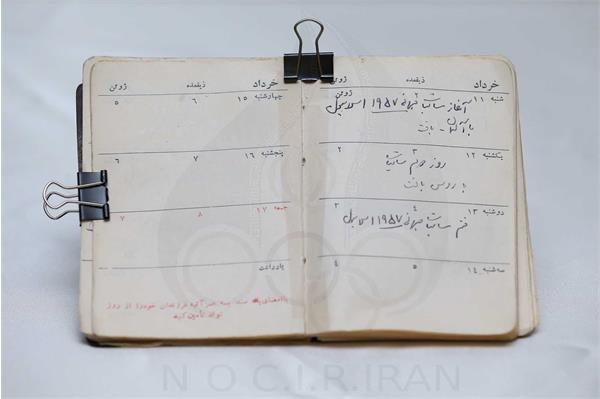 خرداد ذیقعده ژوئن
شنبه ۱۱ ۲
آغاز مسابقات جهانی ۱۹۵۷ استانبول
با آلمان - باخت
یکشنبه ۱۲ ۳ ۲
روز دوم مسابقات
با روس باخت
دوشنبه ۱۳ ۴ ۳
ختم مسابقات جهانی ۱۹۵۷ استانبول
سه شنبه ۱۴ ۵ ۴
خرداد ذیقعده ژوئن
چهارشنبه ۱۵ ۶ ۵
پنجشنبه ۱۶ ۷ ۶
جمعه ۱۷ ۸ ۷
یادداشت
باامضای یک سند بیمه عمر آتیه فرزندان خود را از روز
تولد تأمین کنید
N O C.I.R.IRAN